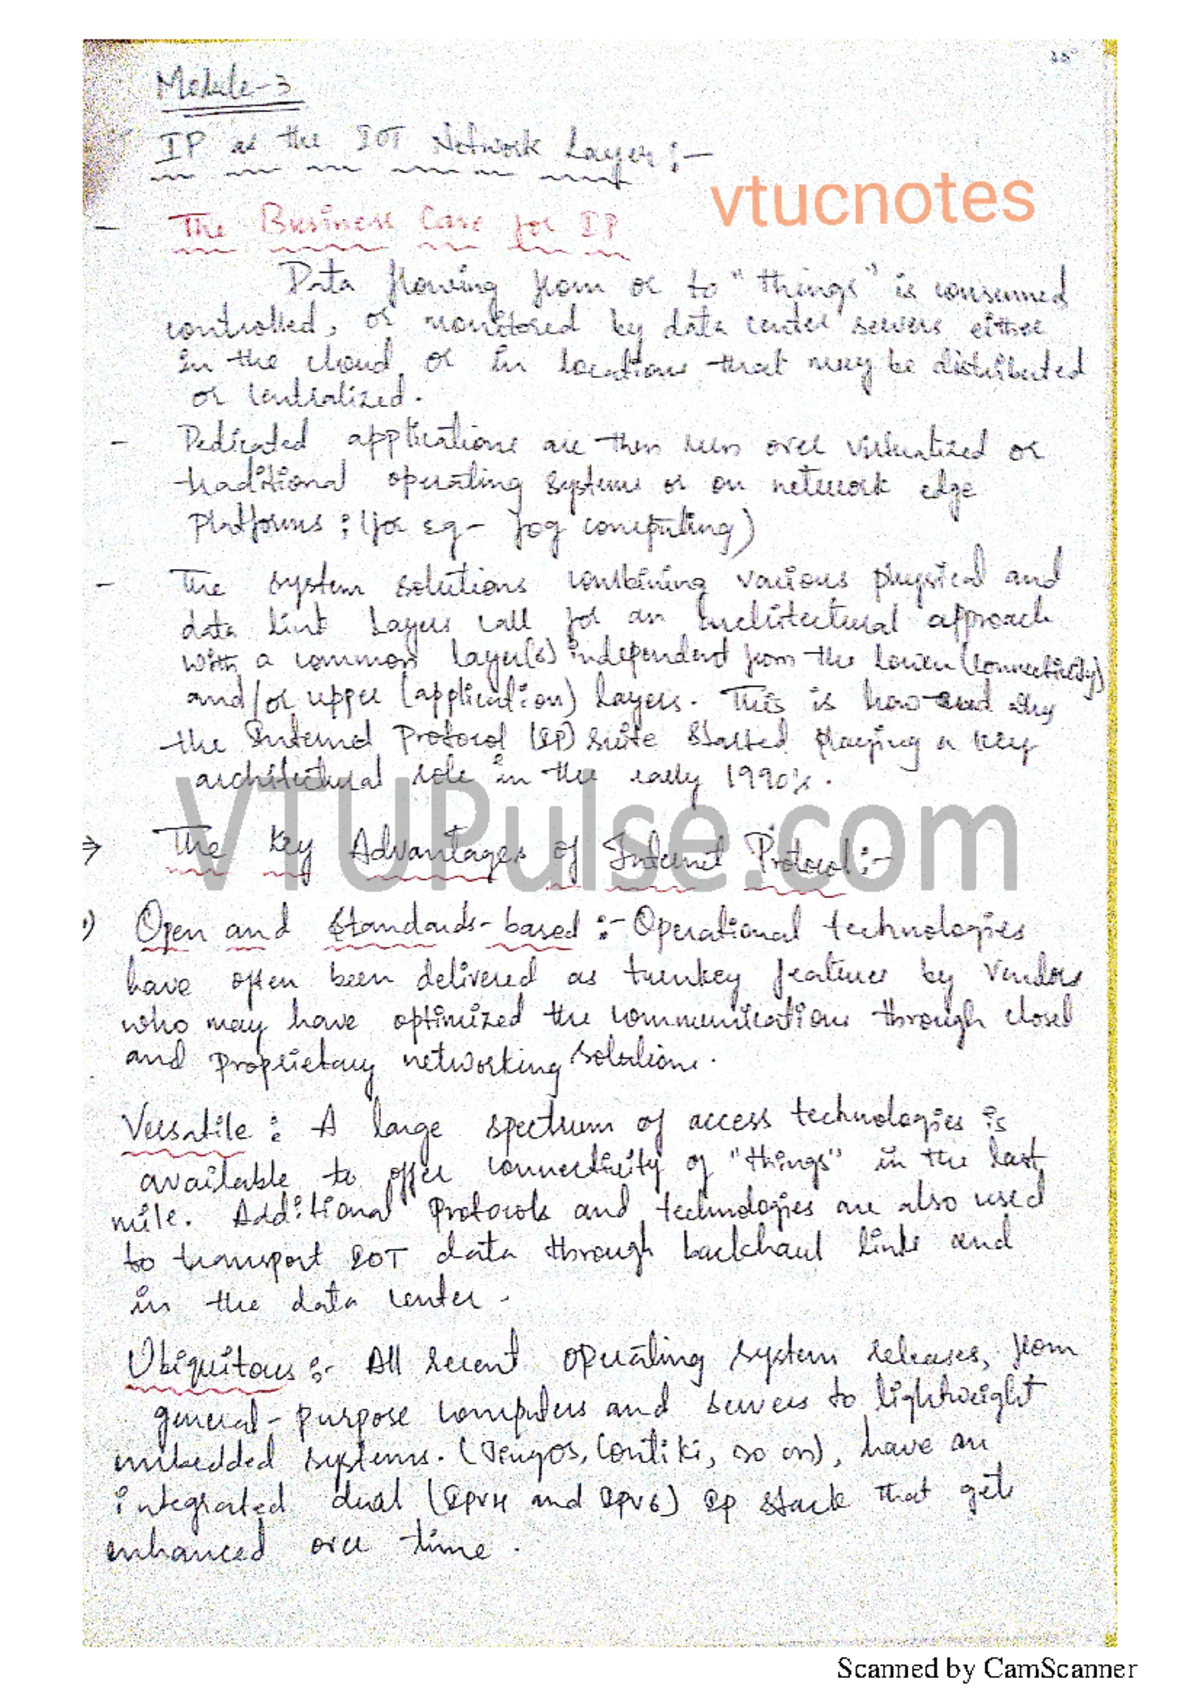 Module-3
IP as the IOT Network Layer :-
vtucnotes
- The Business Case for IP
Data flowing from or to "things" is consumed
controlled, or monitored by data center servers either
in the cloud or in locations that may be distributed
or centralized.
- Dedicated applications are then run over virtualized or
traditional operating systems or on network edge
platforms : (for eg - fog computing)
- The system solutions combining various physical and
data link layers call for an architectural approach
with a common layer(s) independent from the lower (connectivity)
and/or upper (application) layers. This is how and why
the Internet Protocol (IP) suite started playing a key
architectural role in the early 1990's.
VTUPulse.com
⇒ The Key Advantages of Internet Protocol :-
Open and Standards-based :- Operational technologies
have often been delivered as turnkey features by vendors
who may have optimized the communications through closed
and proprietary networking solutions.
Versatile : A large spectrum of access technologies is
available to offer connectivity of "things" in the last
mile. Additional protocols and technologies are also used
to transport IOT data through backhaul links and
in the data center.
Ubiquitous :- All recent operating system releases, from
general-purpose computers and servers to lightweight
embedded systems. (TinyOS, Contiki, so on), have an
integrated dual (IPv4 and IPv6) IP stack that gets
enhanced over time.
Scanned by CamScanner